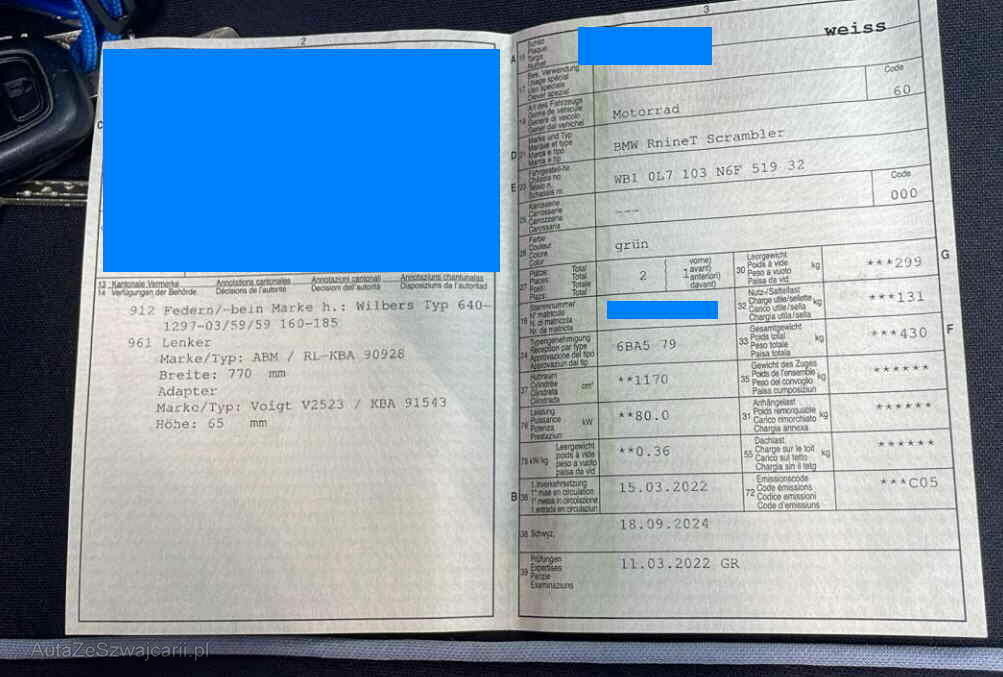 2
13 Kantonale Vermerke Annotations cantonales Annotazioni cantonali Annotaziuns chantunalas
14 Verfügungen der Behörde Décisions de l'autorité Decisioni dell'autorità Disposiziuns da l'autoritad
912 Federn/-bein Marke h.: Wilbers Typ 640-
1297-03/59/59 160-185
961 Lenker
Marke/Typ: ABM / RL-KBA 90928
Breite: 770 mm
Adapter
Marke/Typ: Voigt V2523 / KBA 91543
Höhe: 65 mm
3
A 15 Schild
Plaque
Targa
Numer
weiss
17 Bes. Verwendung
Usage spécial
Uso speciale
Diever spezial
Code
60
19 Art des Fahrzeugs
Genre de véhicule
Genere di veicolo
Gener dal vehichel
Motorrad
D 21 Marke und Typ
Marque et type
Marca e tipo
Marca e tip
BMW RnineT Scrambler
E 23 Fahrgestell-Nr.
Châssis no
Telaio n.
Schassis nr.
WB1 0L7 103 N6F 519 32
25 Karosserie
Carrosserie
Carrozzeria
Carossaria
---
Code
000
26 Farbe
Couleur
Colore
Colur
grün
27 Plätze: Total
Places: Total
Posti: Totale
Plazs: Total
2
vorne)
avant)
anteriori)
davant)
1
30 Leergewicht
Poids à vide
Peso a vuoto
Paisa da vid
kg
***299
G
18 Stammnummer
N° matricule
N. di matricola
Nr. da matricla
32 Nutz-/Sattellast
Charge utile/sellette
Carico utile/sella
Chargia utila/sella
kg
***131
24 Typengenehmigung
Réception par type
Approvazione del tipo
Approvaziun dal tip
6BA5 79
33 Gesamtgewicht
Poids total
Peso totale
Paisa totala
kg
***430
F
37 Hubraum
Cylindrée
Cilindrata
Cilindrada
cm³
**1170
35 Gewicht des Zuges
Poids de l'ensemble
Peso del convoglio
Paisa cumposiziun
kg
******
76 Leistung
Puissance
Potenza
Prestaziun
kW
**80.0
31 Anhängelast
Poids remorquable
Carico rimorchiato
Chargia annexa
kg
******
78 kW/kg Leergewicht
poids à vide
peso a vuoto
paisa da vid
**0.36
55 Dachlast
Charge sur le toit
Carico sul tetto
Chargia sin il tetg
kg
******
B 36 1. Inverkehrsetzung
1re mise en circulation
1a messa in circolazione
1. entrada en circulaziun
15.03.2022
72 Emissionscode
Code émissions
Codice emissioni
Code d'emissiuns
***C05
38 Schwyz,
18.09.2024
39 Prüfungen
Expertises
Perizie
Examinaziuns
11.03.2022 GR
AutaZeSzwajcarii.pl